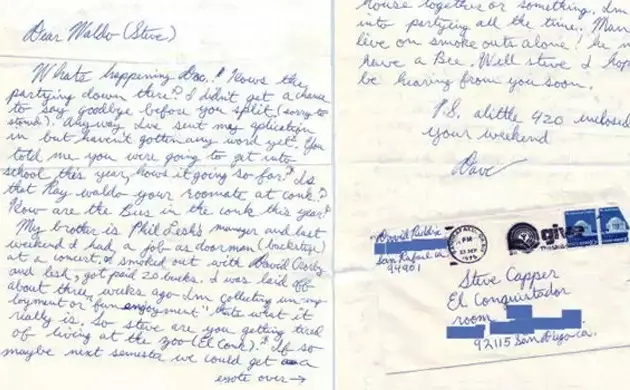 Dear Waldo (Steve)
Whats happening Doc.? Hows the
partying down there? I didn't get a chance
to say goodbye before you split (sorry to
). Anyway Ive sent my aplication
in but haven't gotten any word yet. You
told me you were going to get into
school this year, hows it going so far? Is
that Ray waldo your roomate at conk?
How are the in the conk this year?
My brother is Phil Lesh's manger and last
weekend I had a job as doorman (backstage)
at a concert. I smoked out with David Crosby
and lesh, got paid 20 bucks. I was laid off
about three weeks ago. Im collecting unemp
loyment or "fun enjoyment" thats what it
really is. So steve are you getting tired
of living at the zoo (El Conk)? If so
maybe next semester we could get a
over →
house together or something. Im
into partying all the time. Man
live on smoke outs alone! he m
have a Bee. Well steve I hop
be hearing from you soon.
P.S. a little 420 enclosed
your weekend
Dave
David Reddix
San Rafael ca.
94901
PM
SEP
give
Steve Capper
El Conquistador
room
92115 San Diego ca.